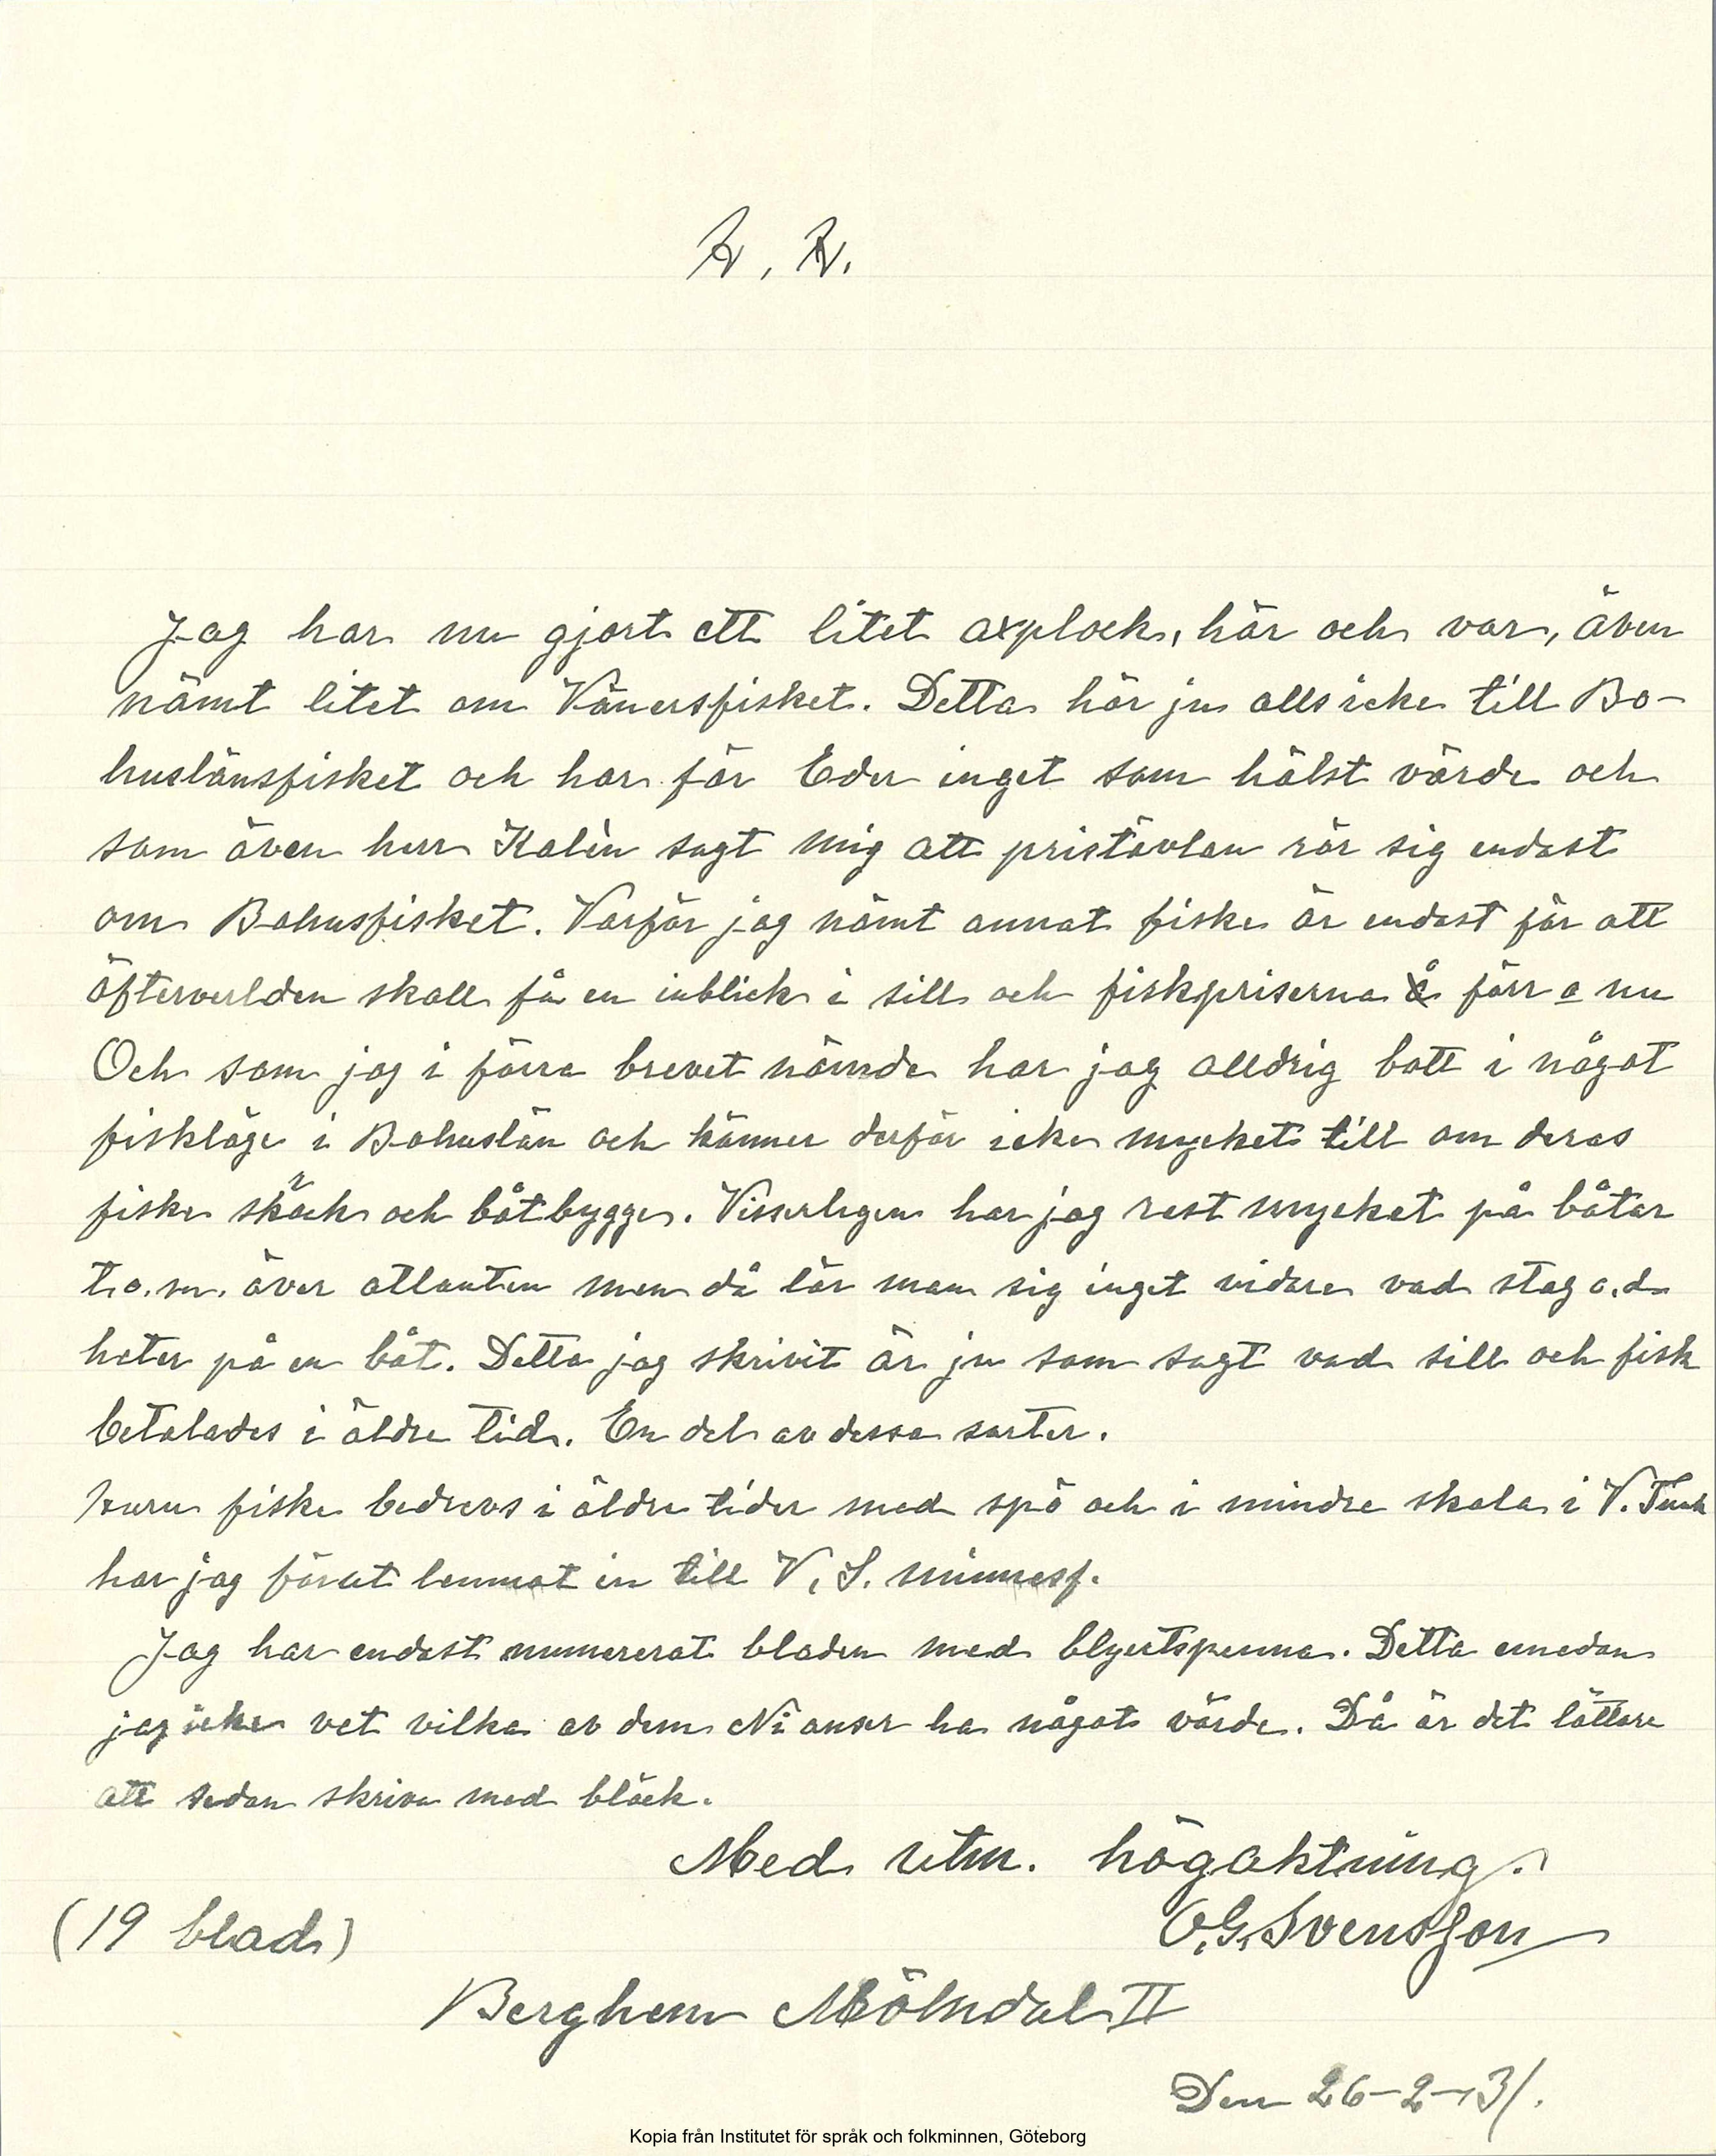 H. H.
Jag har nu gjort ett litet axplock, här och var, även
nämt litet om Vänersfisket. Detta hör ju alls icke till Bo-
huslänsfisket och har för Eder inget som hälst värde och
som även herr Kalén sagt mig att pristävlan rör sig endast
om Bohusfisket. Varför jag nämt annat fiske är endast för att
öfterverlden skall få en inblick i sill och fiskpriserna förr o nu
Och som jag i förra brevet nämde har jag alldrig bott i något
fiskläge i Bohuslän och känner derför icke mycket till om deras
fiske skick och båtbygge. Visserligen har jag rest mycket på båtar
t.o.m. över atlanten men då lär man sig inget vidare vad stag o.d.
heter på en båt. Detta jag skrivit är ju som sagt vad sill och fisk
betalades i äldre tid. En del av dessa sorter.
Huru fiske bedrevs i äldre tider med spö och i mindre skala i V. Tunh
har jag förut lemnat in till V. S. minnesf.
Jag har endast numererat bladen med blyertspenna. Detta emedan
jag icke vet vilka av dem Ni anser ha något värde. Då är det lättare
att sedan skriva med bläck.
Med utm. högaktning.
(19 blad)
O.G. Svensson
Berghem Mölndal II
Den 26-2-31.
Kopia från Institutet för språk och folkminnen, Göteborg